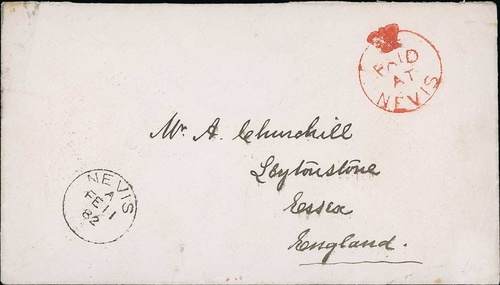 PAID
AT
NEVIS
Mr. A. Churchill
Leytonstone
Essex
England.
NEVIS
A
FE 11
82